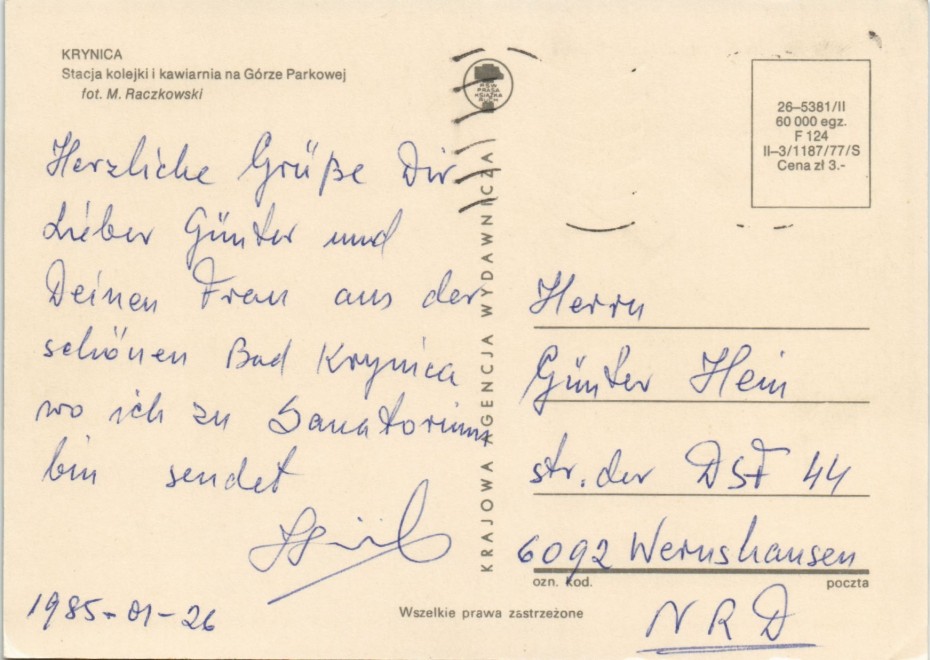 KRYNICA
Stacja kolejki i kawiarnia na Górze Parkowej
fot. M. Raczkowski
Herzliche Grüße Dir
Lieber Günter und
Deinen Frau aus der
schönen Bad Krynica
wo ich zu Sanatorium
bin sendet
1985-01-26
RSW
PRASA
KSIĄŻKA
RUCH
KRAJOWA AGENCJA WYDAWNICZA
26–5381/II
60 000 egz.
F 124
II–3/1187/77/S
Cena zł 3.-
Herrn
Günter Hein
str. der DSF 44
6092 Wernshausen
ozn. kod. poczta
NRD
Wszelkie prawa zastrzeżone